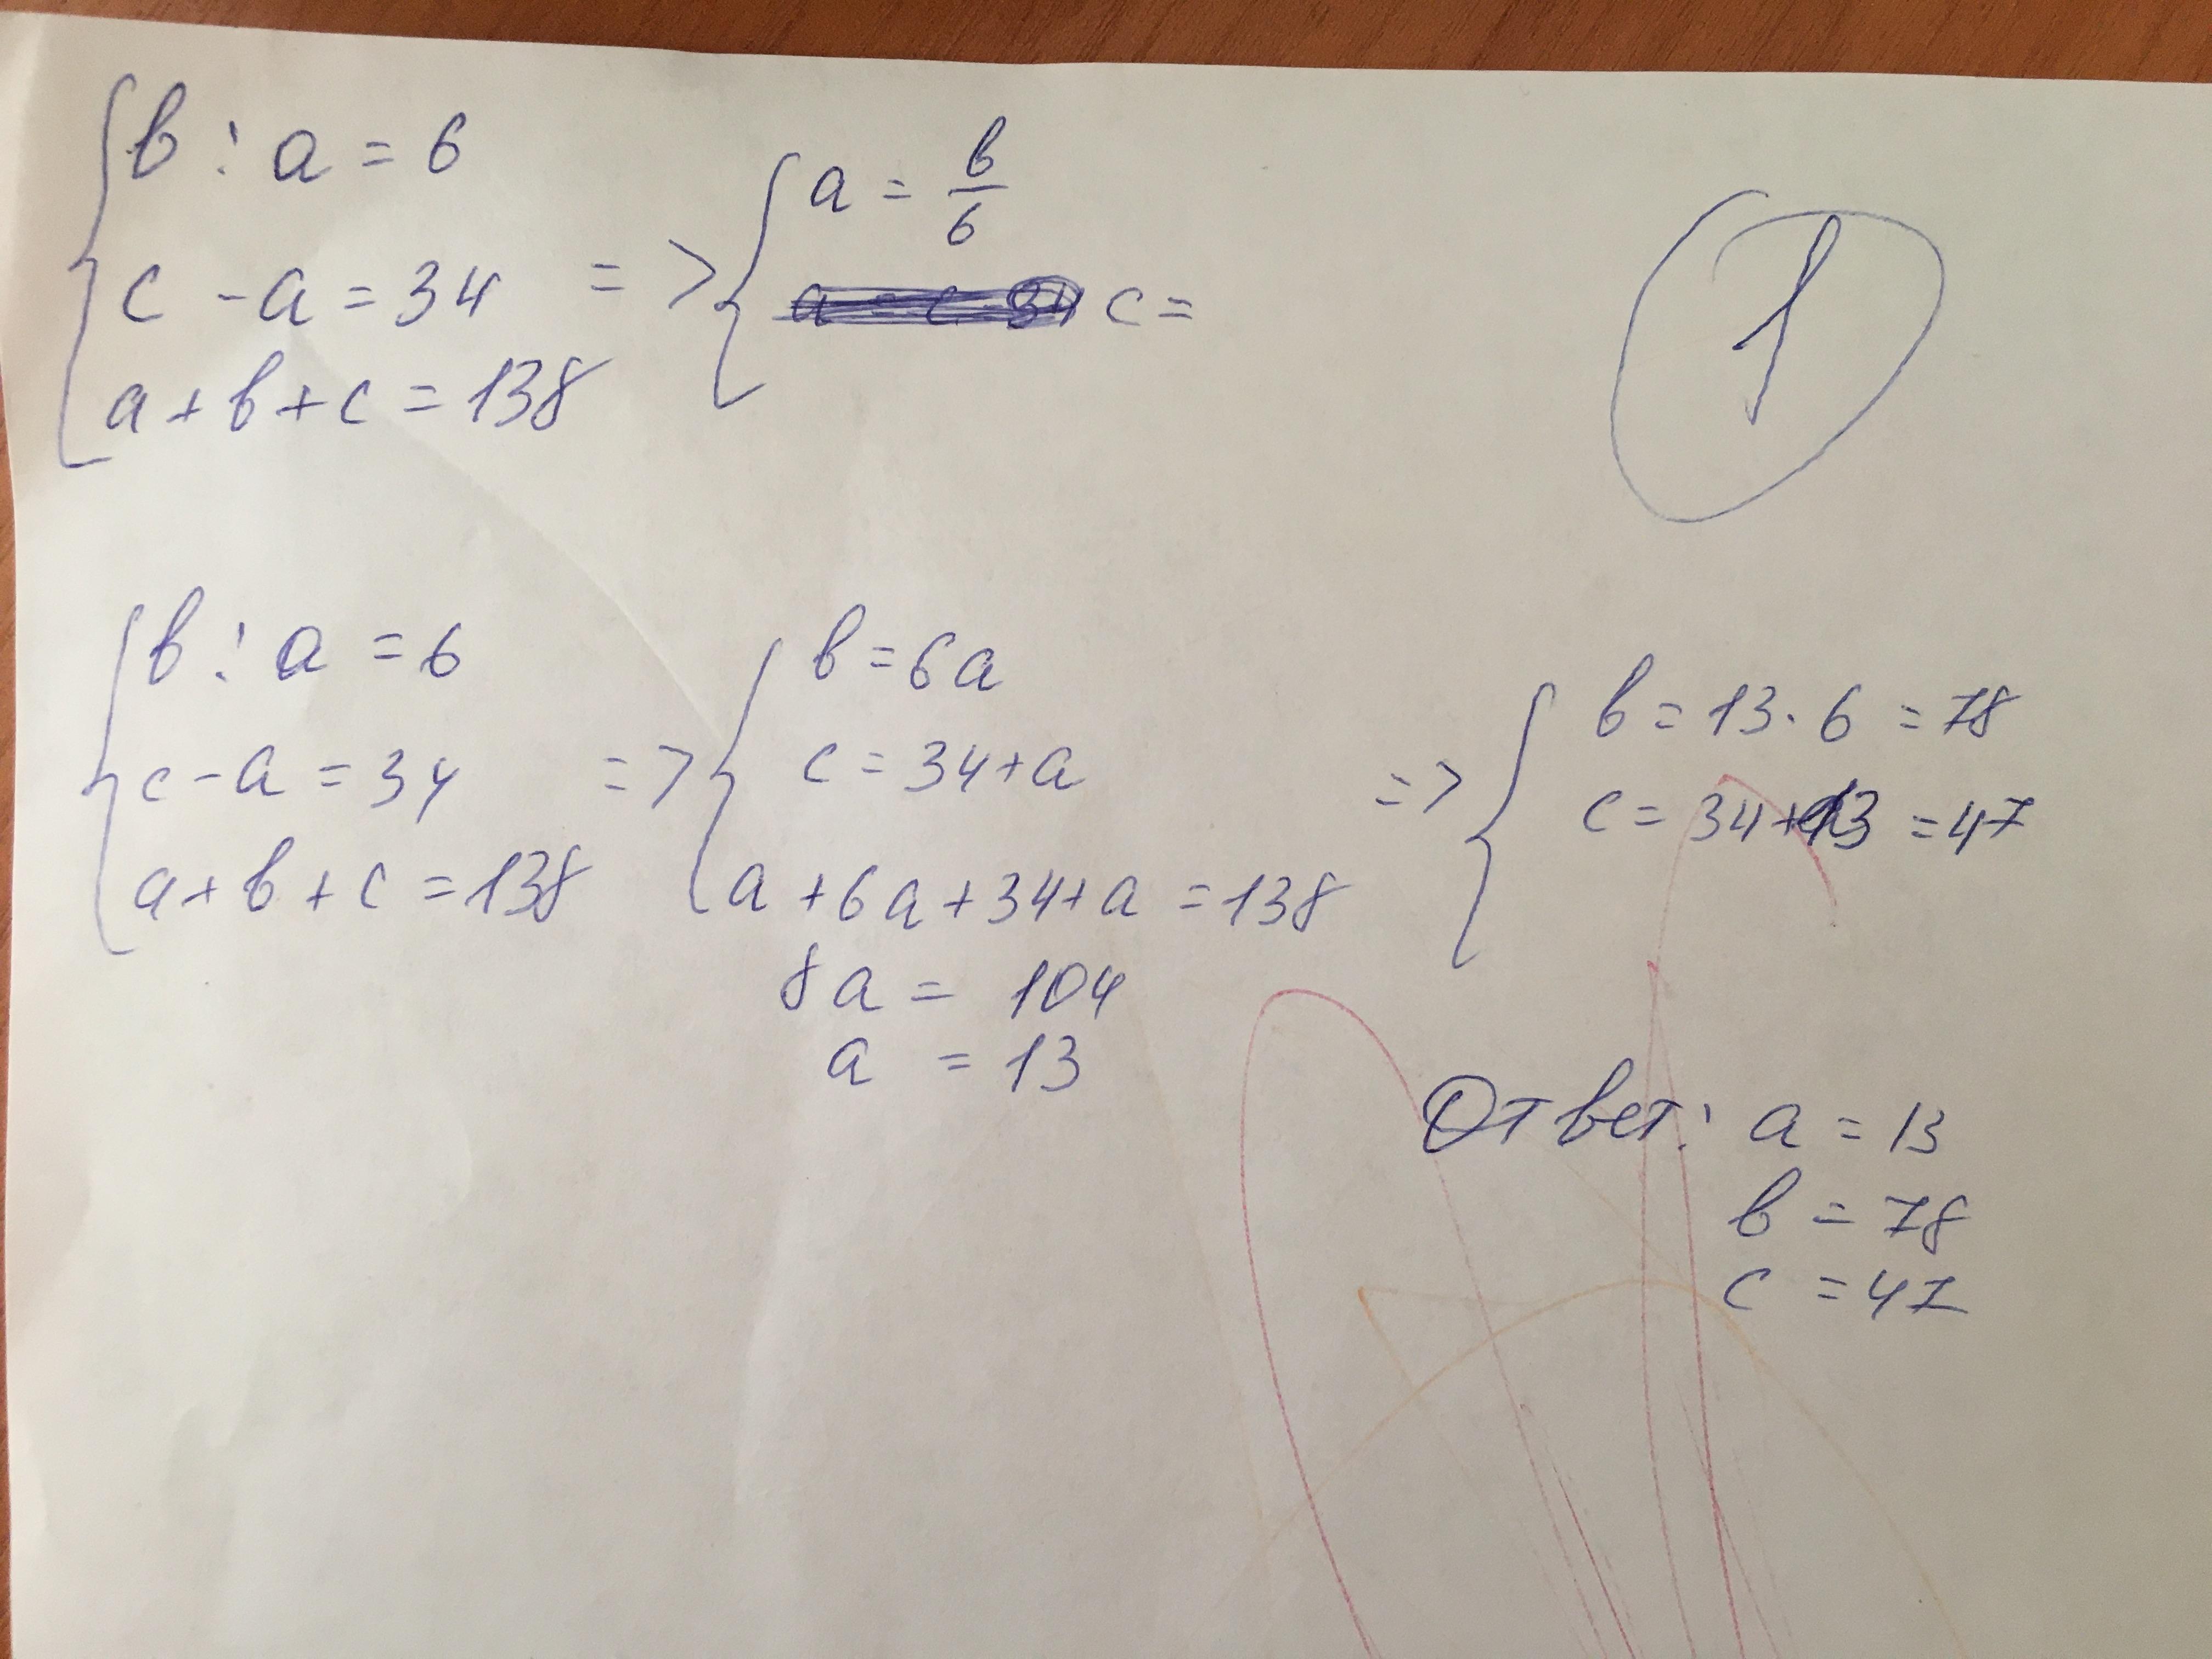 b : a = 6
c - a = 34
a + b + c = 138
=>
a = b/6
a = c - 34 c =
1
b : a = 6
c - a = 34
a + b + c = 138
=>
b = 6a
c = 34 + a
a + 6a + 34 + a = 138
8a = 104
a = 13
=>
b = 13 · 6 = 78
c = 34 + 13 = 47
Ответ: a = 13
b = 78
c = 47